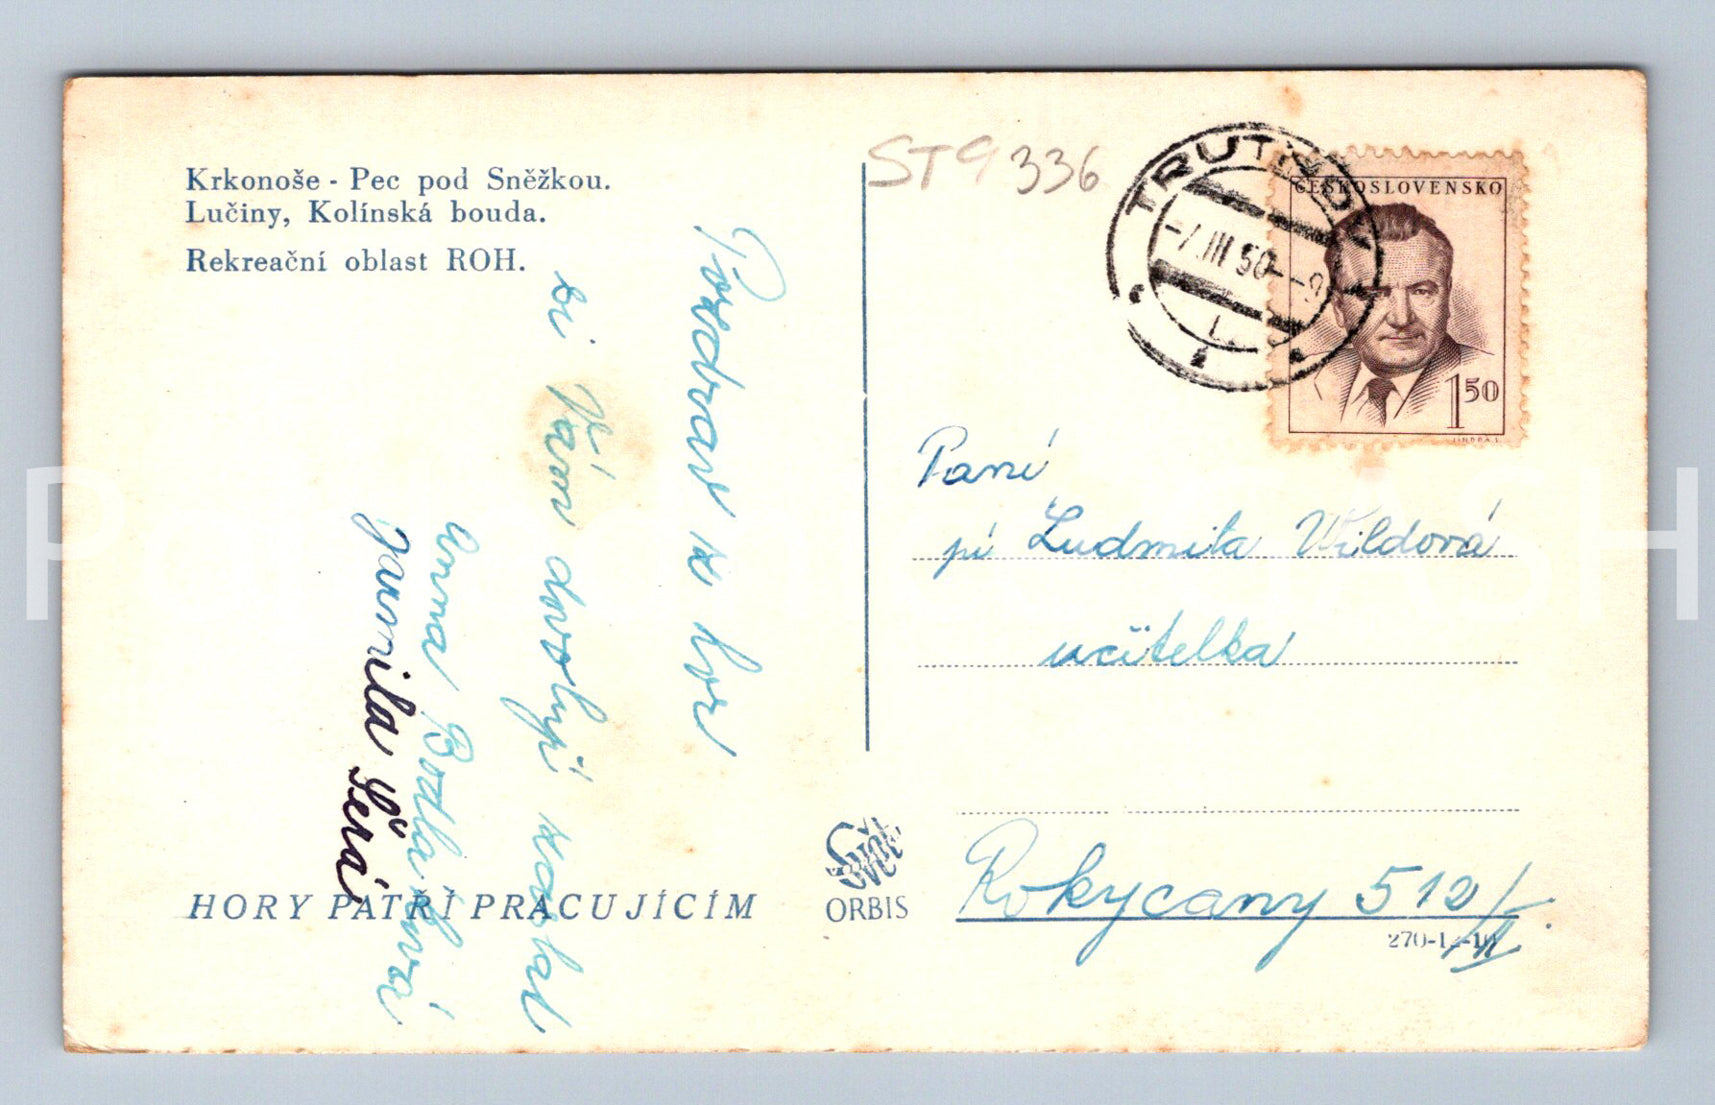 Krkonoše - Pec pod Sněžkou.
Lučiny, Kolínská bouda.
Rekreační oblast ROH.
Pozdrav z hor
si Vám dovolují zaslat
Anna
Jarmila Šerá
HORY PATŘÍ PRACUJÍCÍM
Svět
ORBIS
ST9 336
TRUTNOV
-7.III 50--9
1
ČESKOSLOVENSKO
1 50
JINDRA L.
Paní
pí Ludmila Wildová
učitelka
Rokycany 512/II.